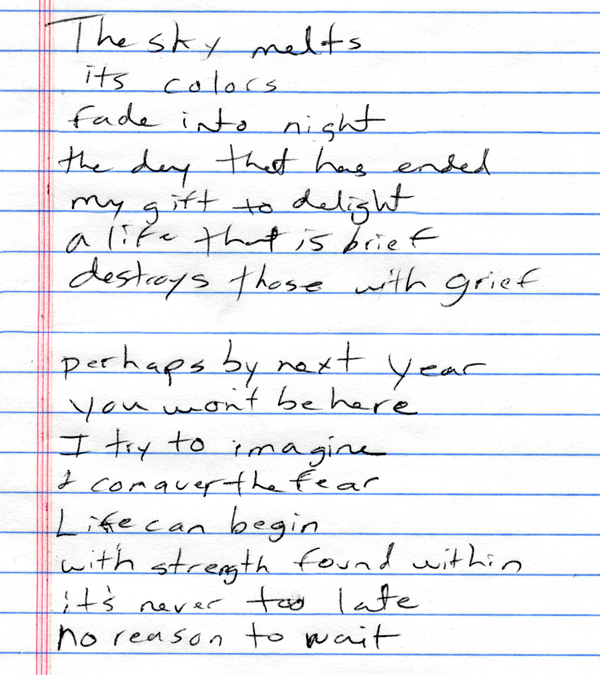 The sky melts
its colors
fade into night
the day that has ended
my gift to delight
a life that is brief
destroys those with grief
perhaps by next year
you won't be here
I try to imagine
& conquer the fear
Life can begin
with strength found within
it's never too late
no reason to wait